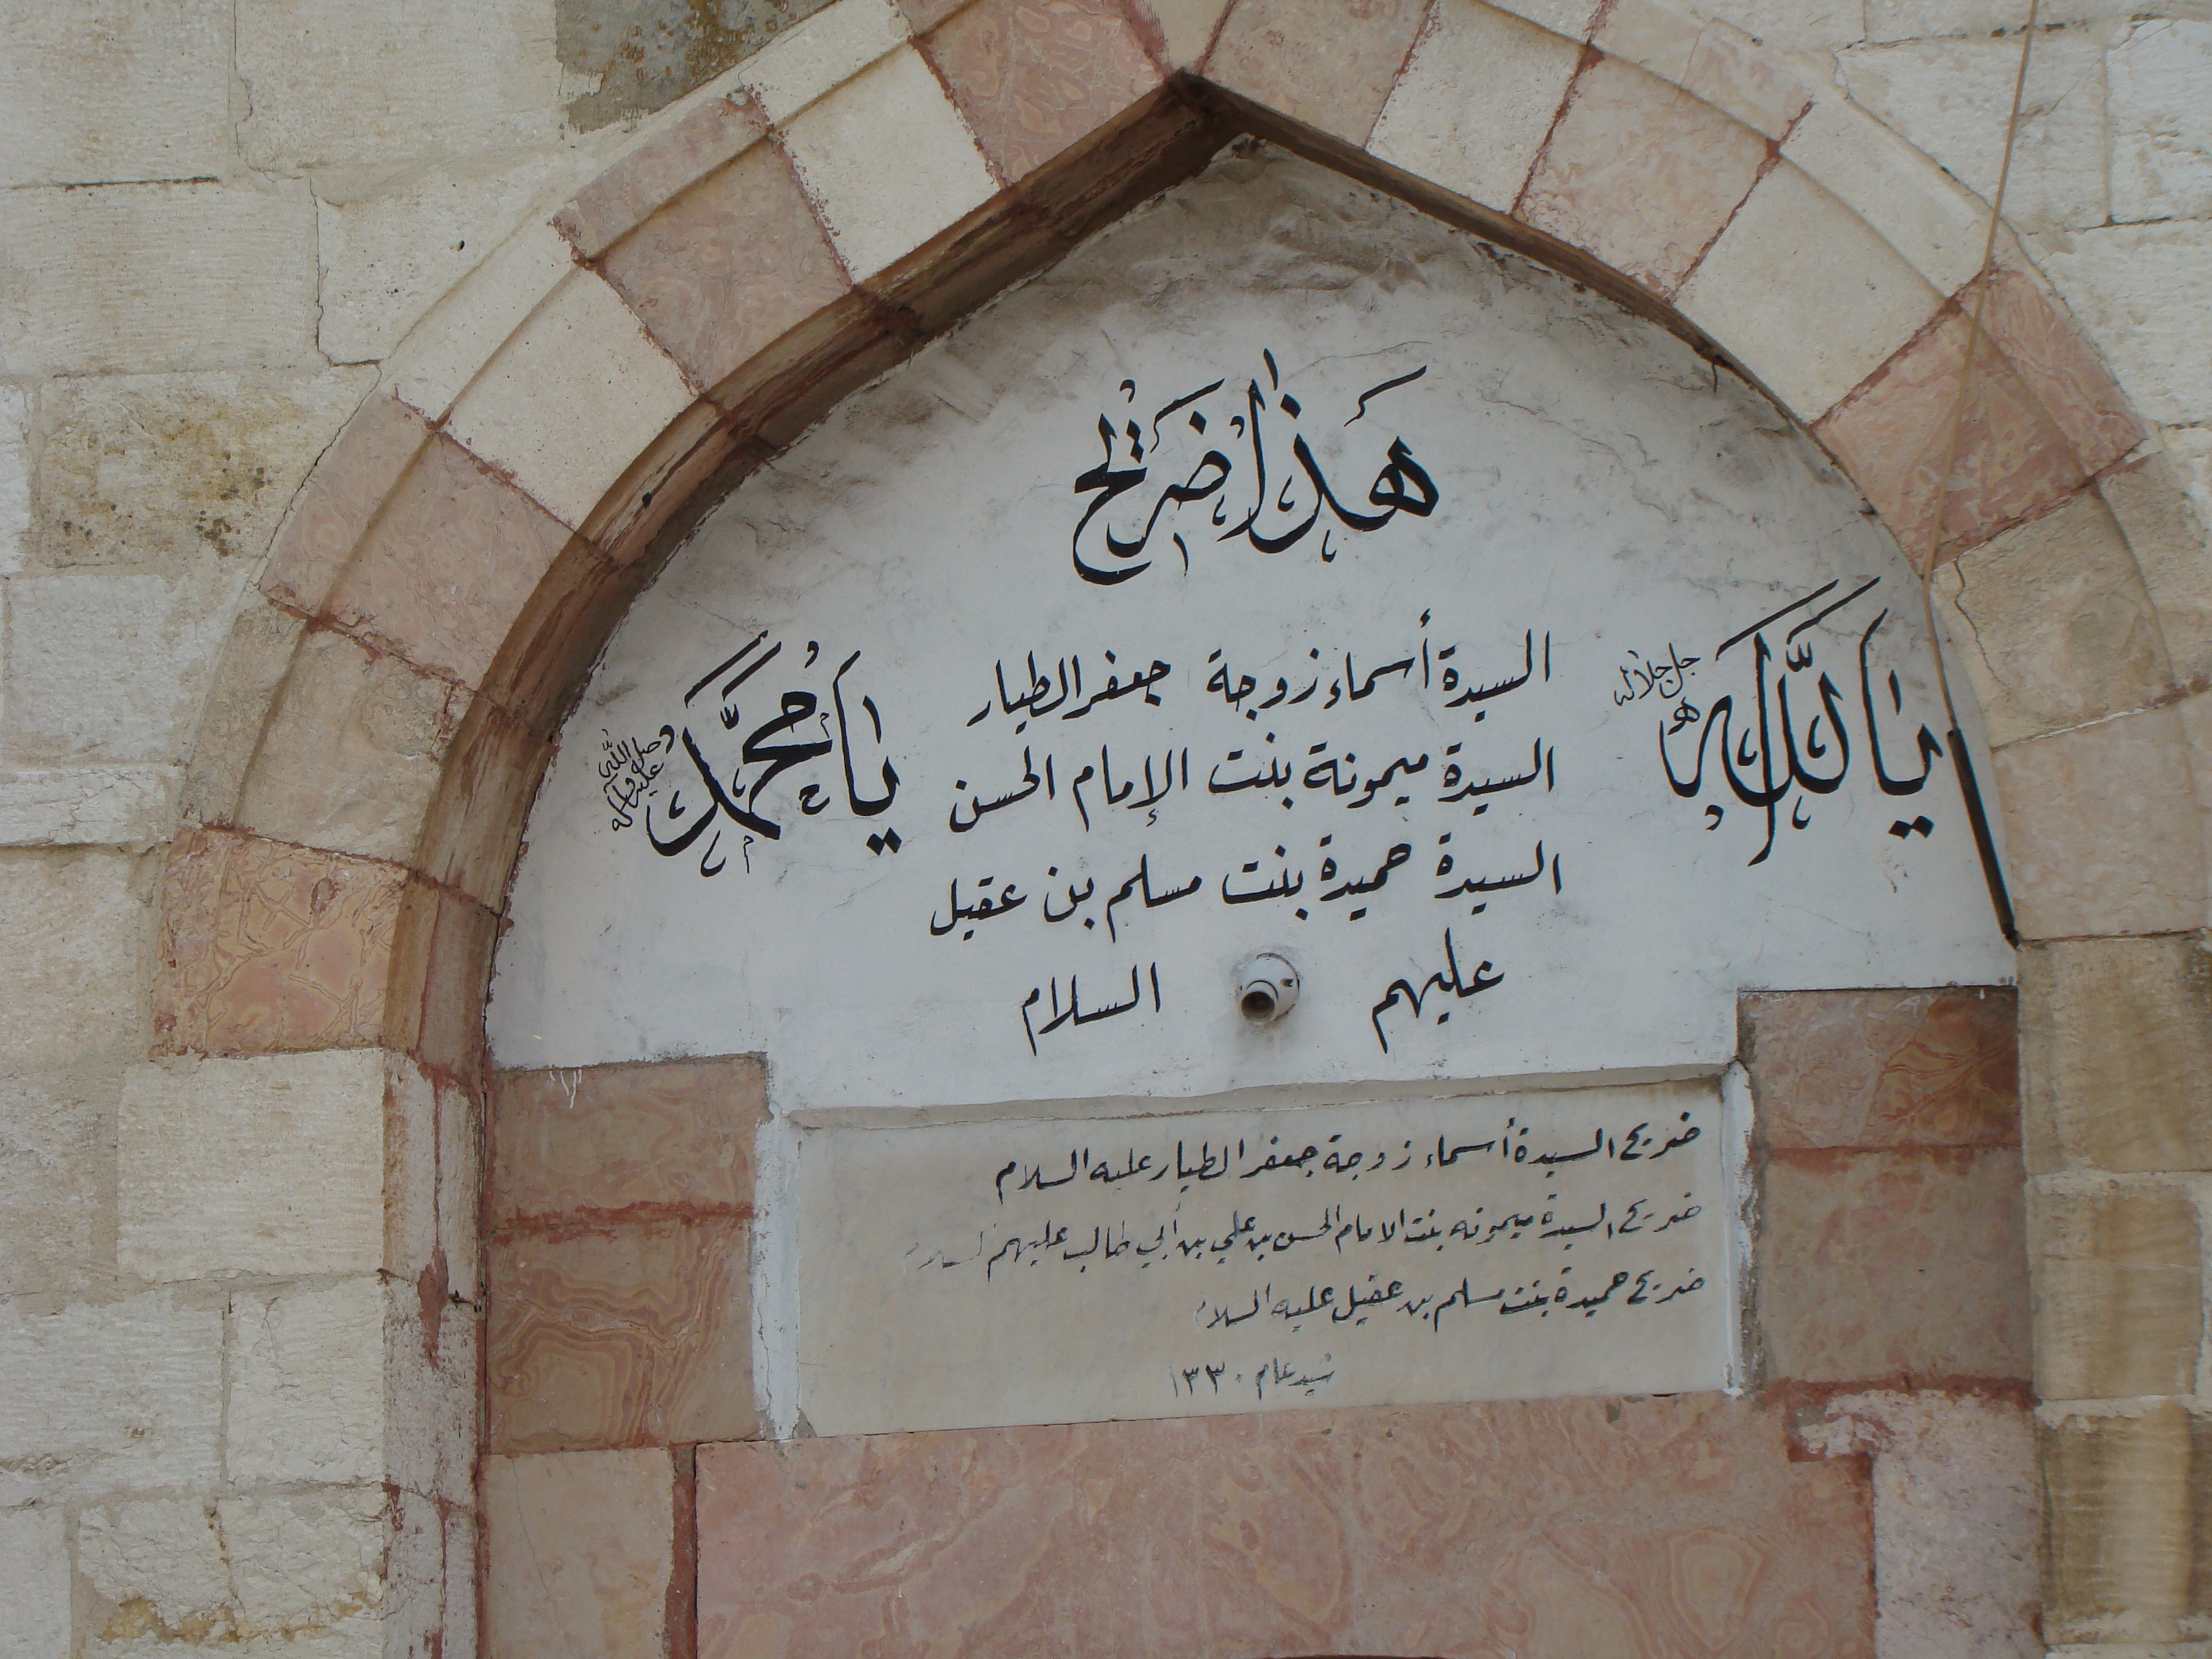 هَذَا ضَرِيحُ
يَا اللّٰه
جل جلاله
السيدة أسماء زوجة جعفر الطيار
يَا مُحَمَّد
صلى الله عليه وآله
السيدة ميمونة بنت الإمام الحسن
السيدة حميدة بنت مسلم بن عقيل
عليهم السلام
ضريح السيدة أسماء زوجة جعفر الطيار عليه السلام
ضريح السيدة ميمونه بنت الامام الحسن بن علي بن أبي طالب عليهم السلام
ضريح حميدة بنت مسلم بن عقيل عليه السلام
شيد عام ١٣٣٠